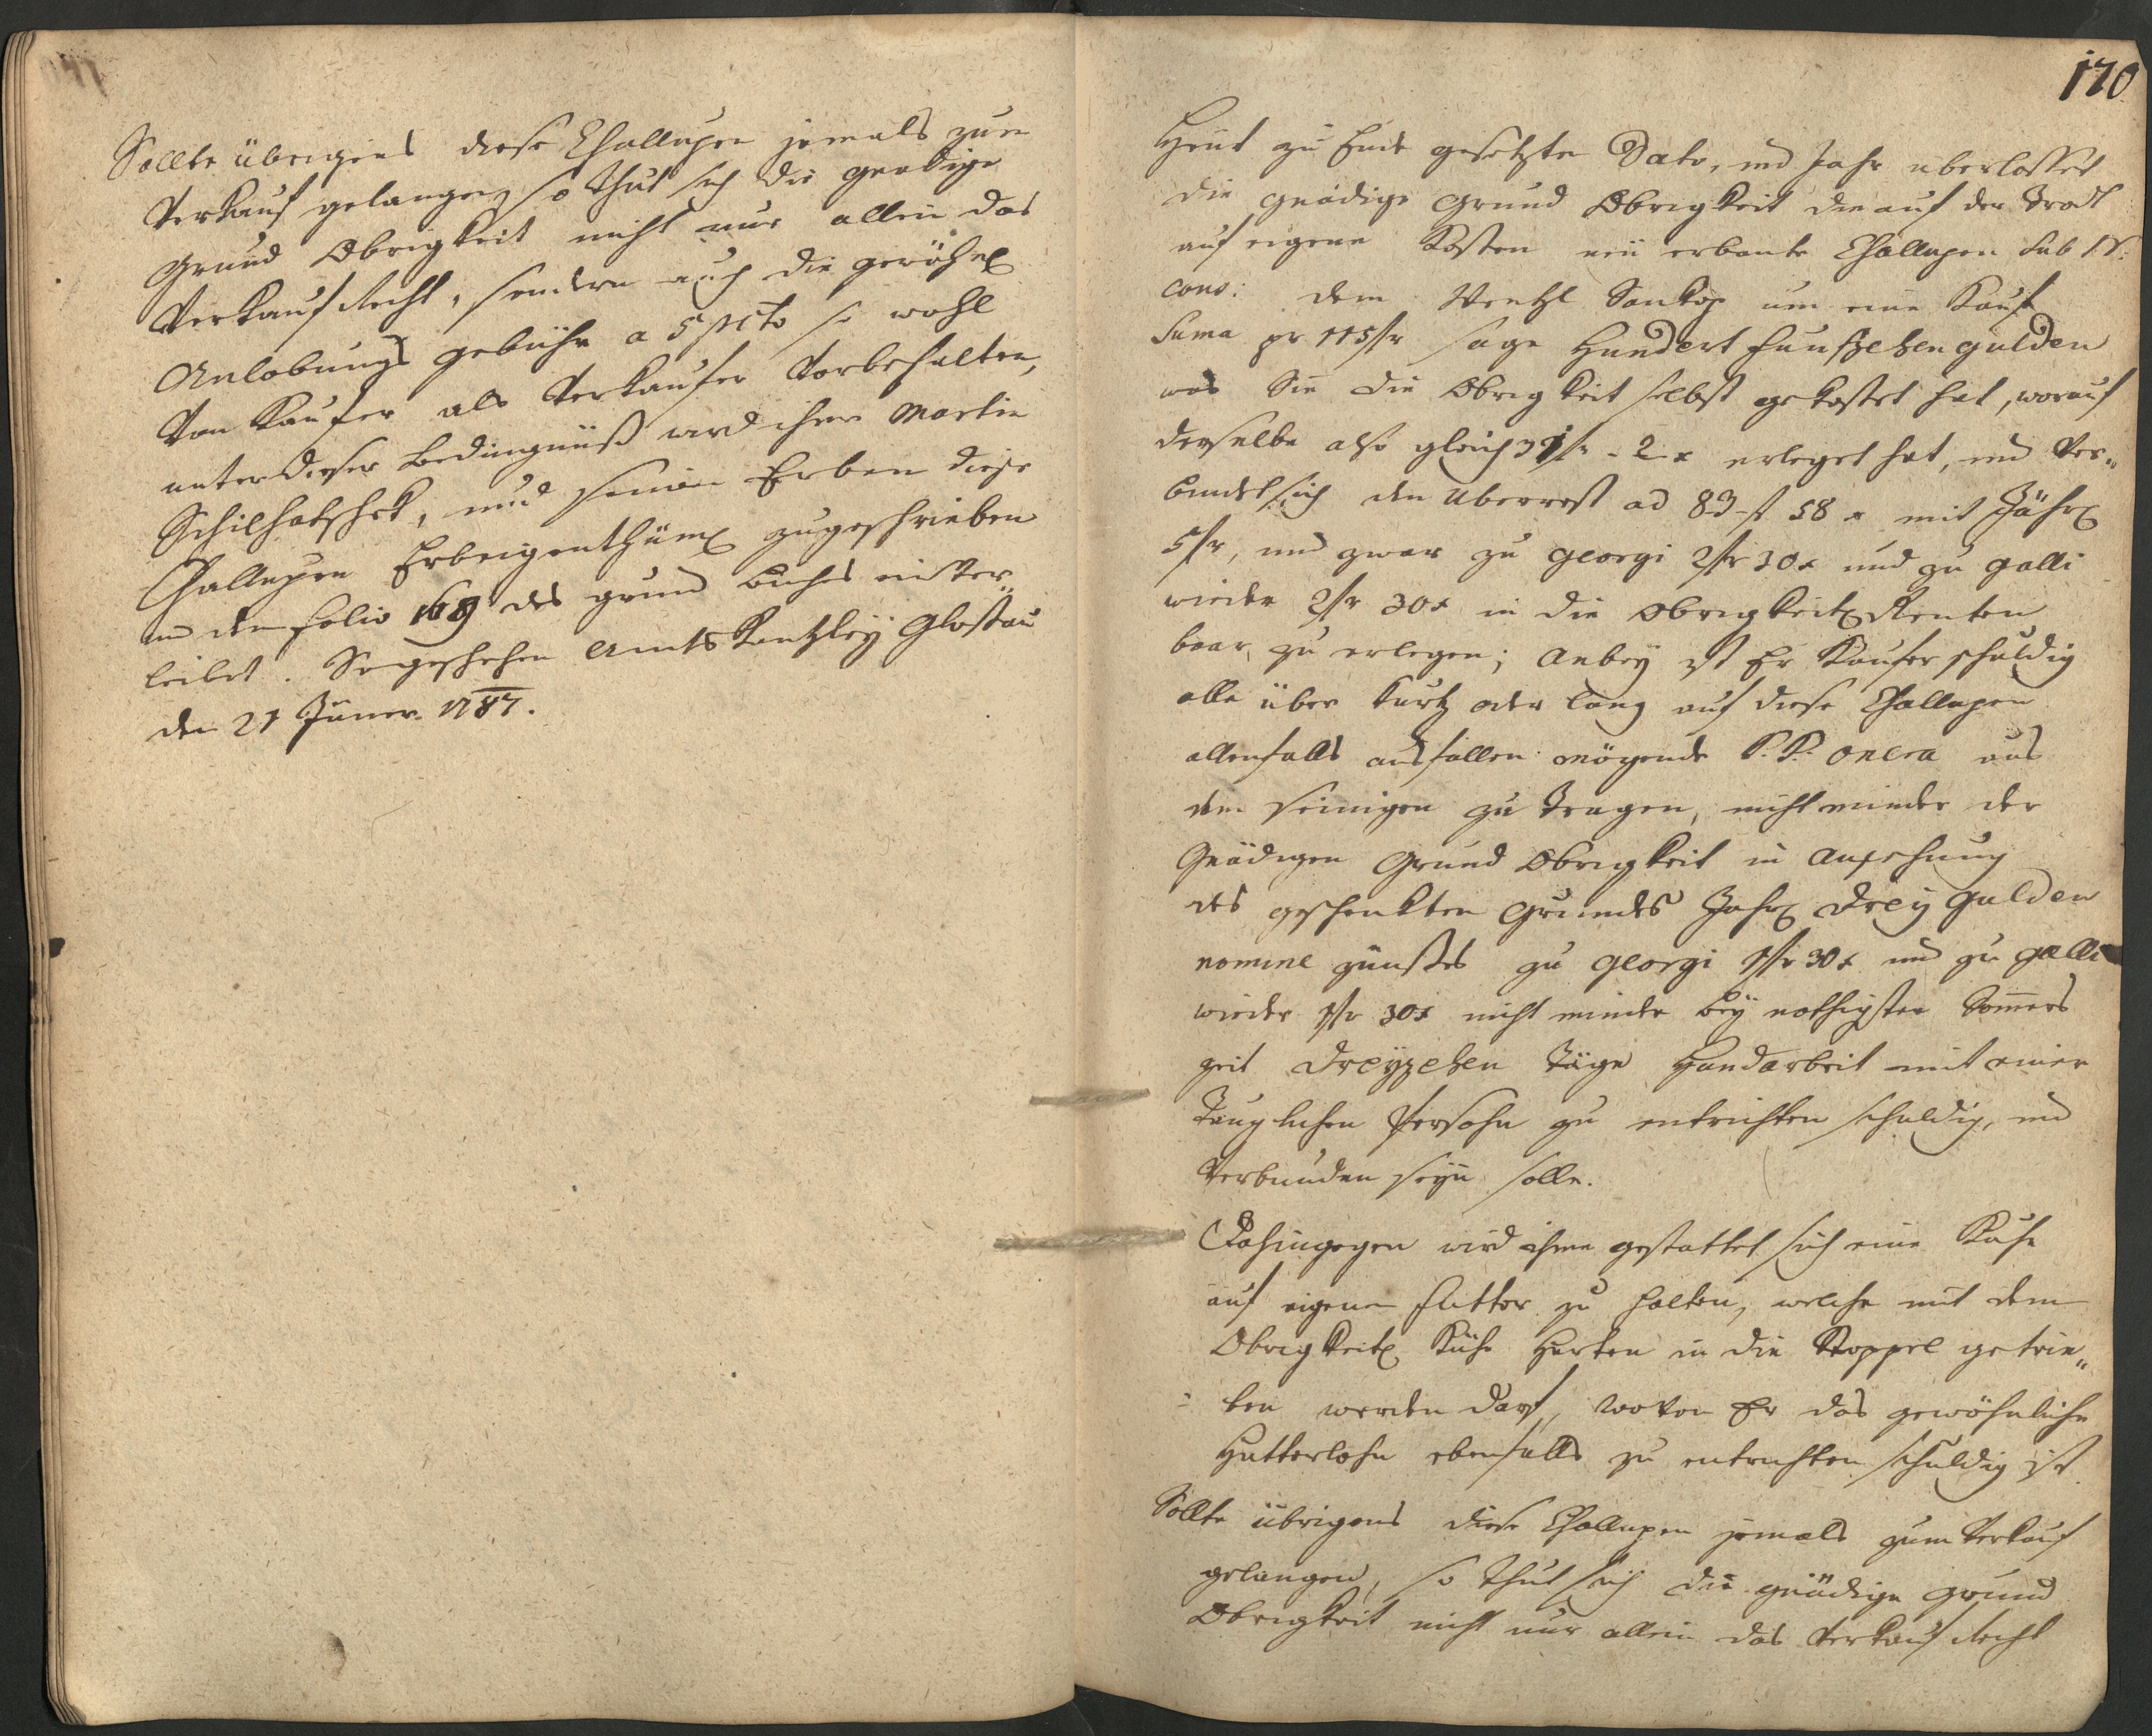 Sollte übrigens diese Challupen jemals zum
Verkauf gelangen, so thut sich die gnädige
Grund Obrigkeit nicht nur allein das
Verkaufs Recht, sondern auch die gewöhnl
Anlobungs gebühr a 5 pcto so wohl
Von Kaufer als Verkaufer Vorbehalten,
unter dieser Bedingnuß wird ihm Martin
Schilhatschek, und seinen Erben diese
Challupen Erbeigenthüml zugeschrieben
und dem folio 169 des grund buchs einver„
leibet. So geschehen Amts Kantzley Glosau
den 21 Jäner 1787.
170
Heut zu Ende gesetzten Dato, und Jahr uberlasset
die gnädige grund Obrigkeit die auf der
auf eigene Kosten neu erbaute Challupen sub N:
cons: dem Wentzl um eine Kauf
Suma pr 115 fr sage Hundert funfzehen gulden
was Sie die Obrigkeit selbst gekostet hat, worauf
derselbe also gleich 31 fr - 2 x erleget hat, und Ver„
bundet sich den Uberrest ad 83 f 58 x mit Jährl
5 fr, und zwar zu Georgi 2 fr 30 x und zu Galli
wieder 2 fr 30 x in die Obrigkeitl Renten
baar zu erlegen; Anbey ist Er Kaufer schuldig
alle über kurtz oder lang auf diese Challupen
allenfalls ausfallen mögende P. P. onera aus
dem seinigen zu tragen, nicht minder der
Gnädigen Grund Obrigkeit in Ansehung
des geschenkten Grundes Jahrl Drey Gulden
nomine zünßes zu Georgi 1 fr 30 x und zu Galli
wieder 1 fr 30 x nicht minder bey nothigster Somers
zeit Dreyzehen Täge Handarbeit mit einer
Tauglichen Persohn zu entrichten schuldig, und
Verbunden seyn solle.
Dahingegen wird ihme gestattet sich eine Kuhe
auf eigenen futter zu halten, welche mit dem
Obrigkeitl Kühe Herten in die Stoppel getrie„
ben werden darf, wovon Er das gewöhnliche
Hutterlohn ebenfalls zu entrichten schuldig ist
Sollte übrigens diese Challupen jemals zum Verkauf
gelangen, so thut sich die gnädige grund
Obrigkeit nicht nur allein das Verkaufs Recht